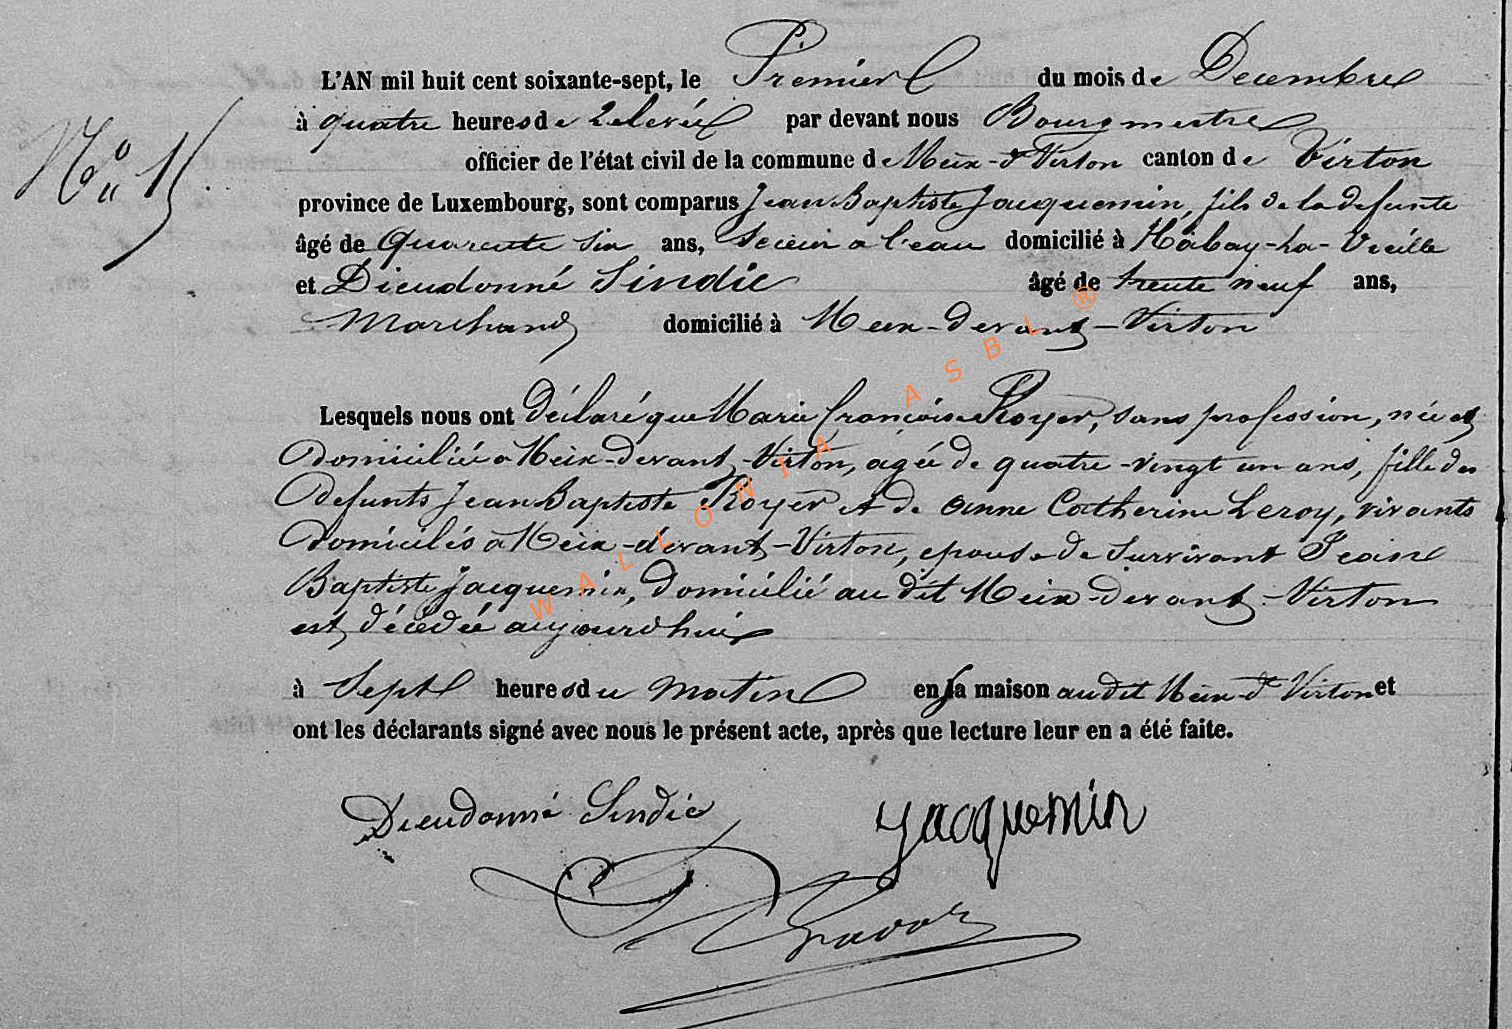 L'AN mil huit cent soixante-sept, le Premier du mois de Decembre
N° 15
à quatre heures de relevée par devant nous Bourgmestre
officier de l'état civil de la commune de Meix-dt Virton canton de Virton
province de Luxembourg, sont comparus Jean Baptiste Jacquemin, fils de la defunte
âgé de Quarente six ans, scieur a l'eau domicilié à Habay-la-Vieille
et Dieudonné Sindic âgé de trente neuf ans,
Marchand domicilié à Meix-devant-Virton
Lesquels nous ont déclaré que Marie françoise Royer, sans profession, née et
domiciliée a Meix-devant-Virton, agée de quatre-vingt un ans, fille des
defunts Jean Baptiste Royer et de anne Catherine Leroy, vivants
domiciliés a Meix-devant-Virton, epouse de survivant Jean
Baptiste Jacquemin, domicilié au dit Meix-devant-Virton
est décédée aujourdhui
à Sept heures du matin en sa maison audit Meix-dt Virton et
ont les déclarants signé avec nous le présent acte, après que lecture leur en a été faite.
Dieudonné Sindic Jacquemin
WALLONIA ASBL ®